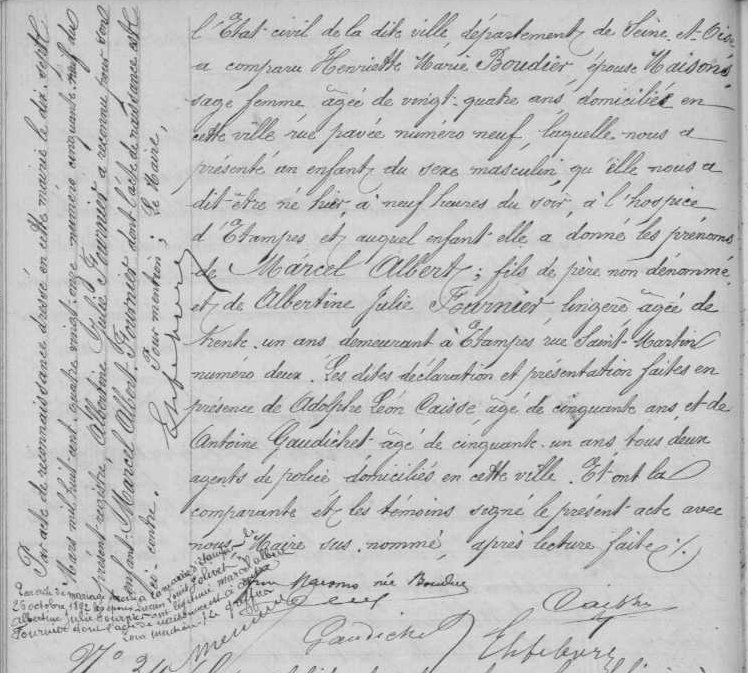 l'Etat civil de la dite ville département de Seine-et-Oise
a comparu Henriette Marie Boudier, épouse Maisons
sage femme âgée de vingt-quatre ans, domiciliée en
cette ville rue pavée numéro neuf, laquelle nous a
présenté un enfant du sexe masculin, qu'elle nous a
dit être né hier, à neuf heures du soir, à l'hospice
d'Etampes et, auquel enfant elle a donné les prénoms
de Marcel Albert; fils de père non dénommé
et de Albertine Julie Fournier, lingère âgée de
trente-un ans, demeurant à Etampes rue Saint-Martin
numéro deux. Les dites déclaration et présentation faites en
présence de Adolphe Léon Caisse âgé de cinquante ans et de
Antoine Gaudichet âgé de cinquante-un ans, tous deux
agents de police domiciliés en cette ville. Et ont la
comparante et les témoins signé le présent acte avec
nous Maire sus-nommé, après lecture faite ./.
née Boudier
Caisse
Gaudichet
Lefebvre
Par acte de reconnaissance dressé en cette mairie le dix-sept
Mars mil huit cent quatre vingt-onze numéro cinquante-neuf du
présent registre, Albertine Julie Fournier a reconnu pour son
enfant Marcel Albert Fournier dont l'acte de naissance est
ci-contre.
Pour mention; Le Maire,
Lefebvre
Par acte de mariage à la mairie d'Etampes le
26 octobre 1892 les époux Jolivet
Albertine Julie Fournier ont légitimé Marcel Albert
Fournier dont l'acte de naissance est ci-contre
Pour mention: Le greffier
N° 24